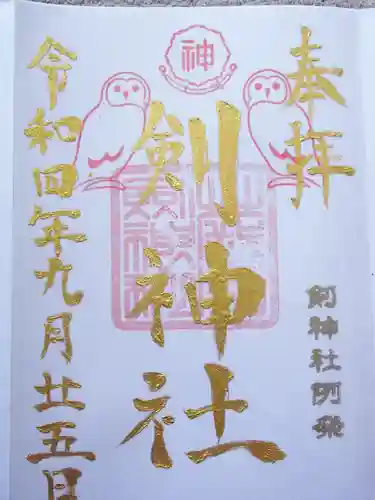 奉拝
剣神社
剣神社例祭
令和四年九月廿五日
神